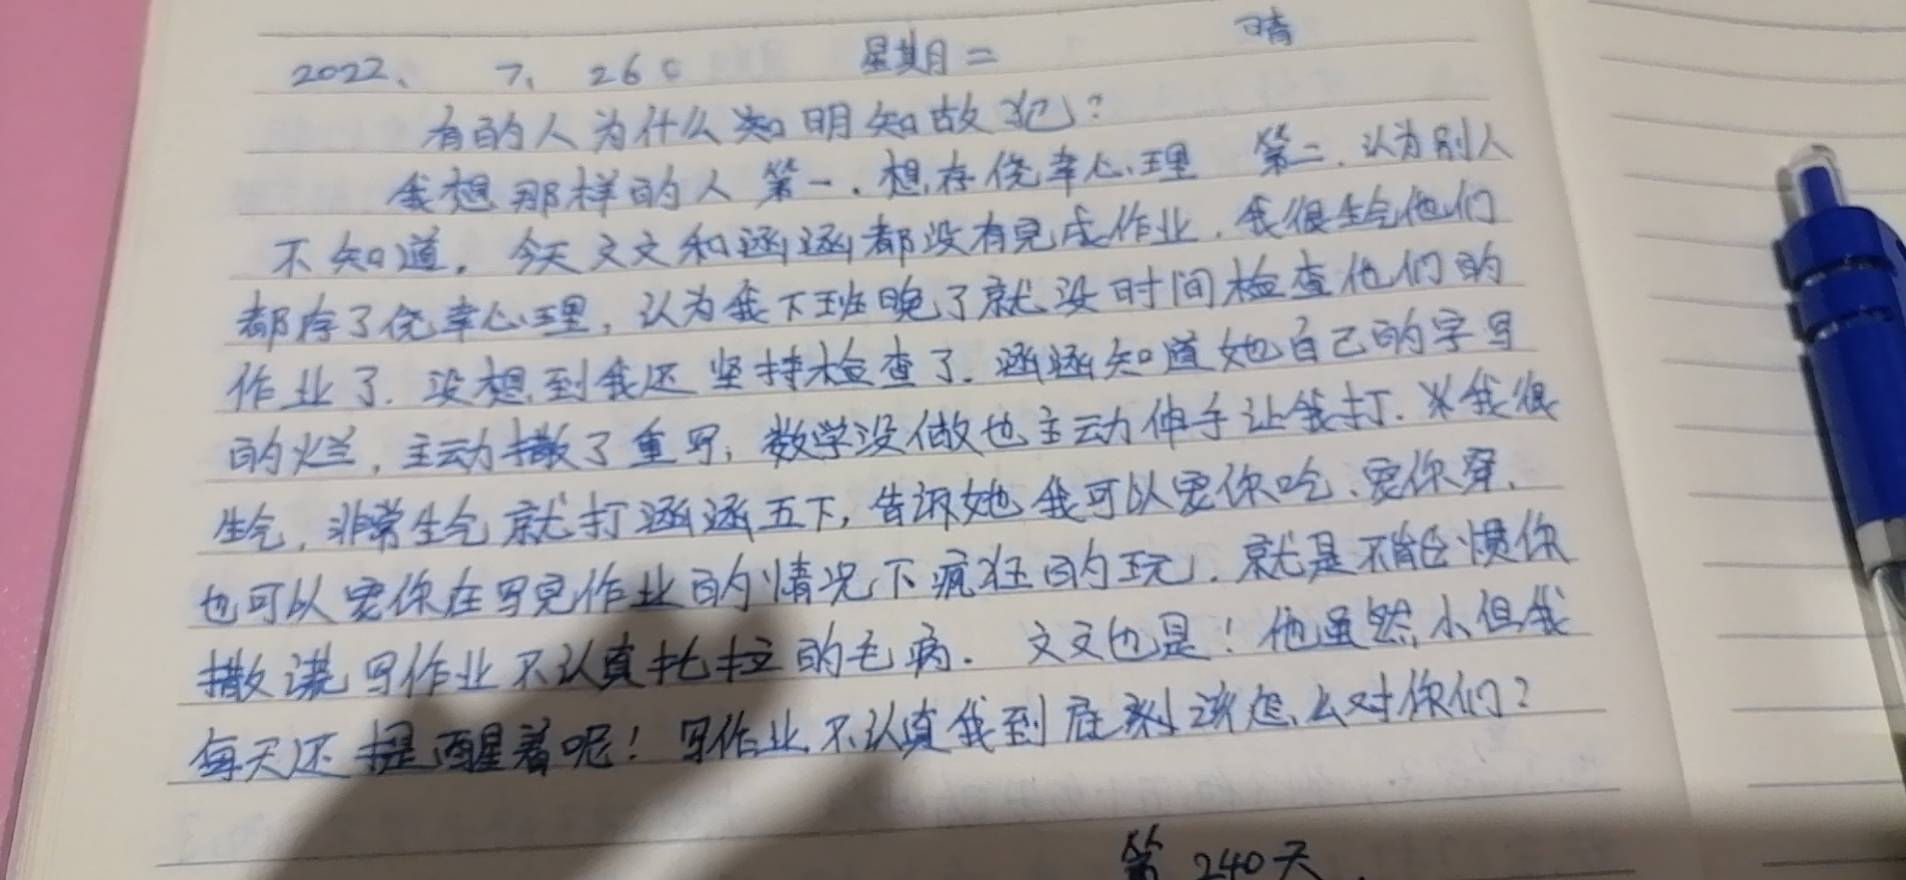 2022、 7、 26。 星期二 晴
有的人为什么知明知故犯？
我想那样的人第一．想存侥幸心理 第二．认为别人
不知道。今天文文和涵涵都没有完成作业．我很生气他们
都存了侥幸心理，认为我下班晚了就没时间检查他们的
作业了．没想到我还坚持检查了．涵涵知道她自己的字写
的烂，主动撕了重写，数学没做也主动伸手让我打．我很
生气，非常生气就打涵涵五下，告诉她我可以宠你吃、宠你穿、
也可以宠你在写完作业的情况下疯狂的玩．就是不能惯你
撒谎写作业不认真扎拉的毛病． 文文也是！他虽然小但我
每天还提醒着呢！写作业不认真我到底该怎么对你们？
第240天．